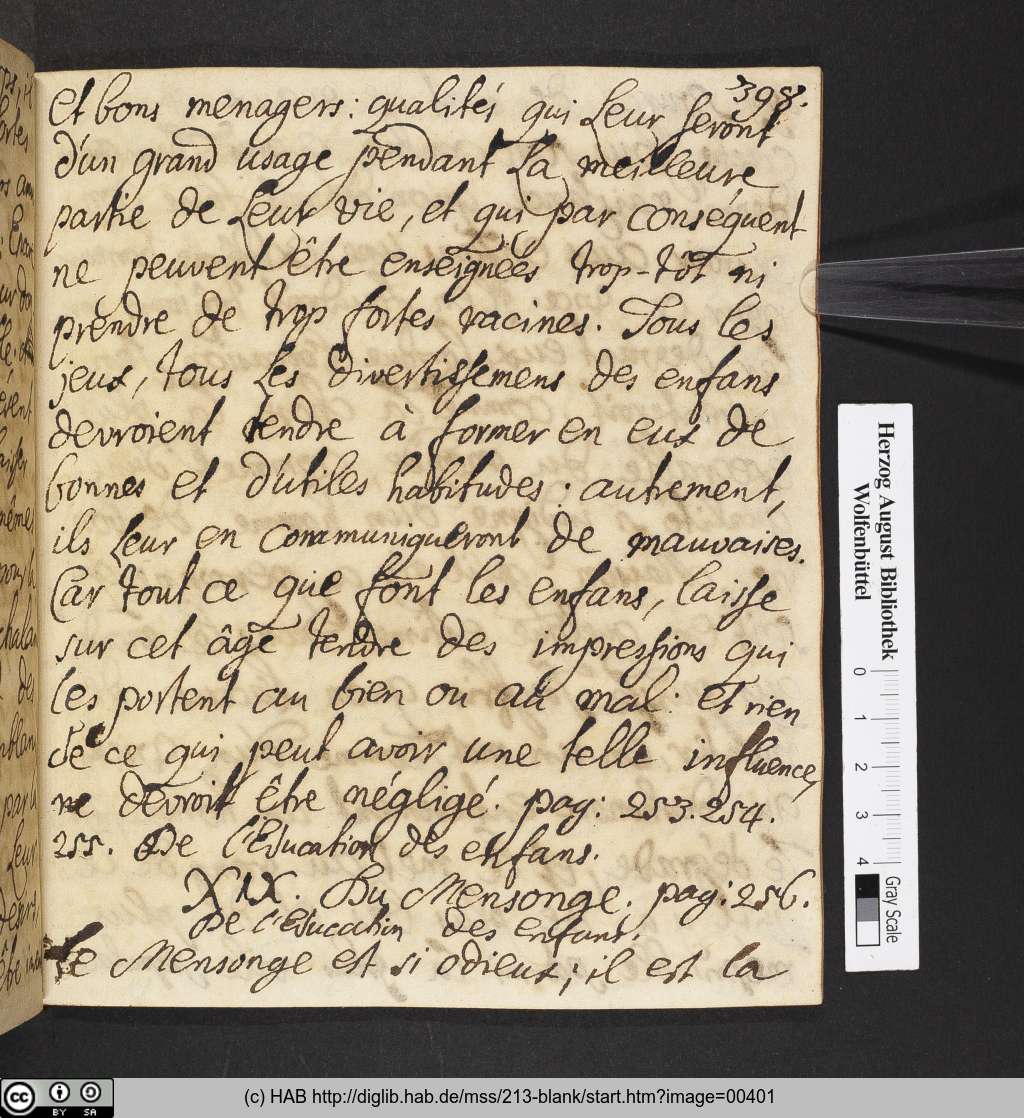 398.
et bons menagers: qualités qui leur seront
d'un grand usage pendant la meilleure
partie de leur vie, et qui par conséquent
ne peuvent être enseignées trop-tôt ni
prendre de trop fortes racines. Tous les
jeux, tous les divertissemens des enfans
devroient tendre à former en eux de
bonnes et d'utiles habitudes: autrement,
ils leur en communiqueront de mauvaises.
Car tout ce que font les enfans, laisse
sur cet âge tendre des impressions qui
les portent au bien ou au mal: et rien
de ce qui peut avoir une telle influence,
ne devroit être négligé. pag: 253.254.
255. De l'Education des enfans.
XIX. Du Mensonge. pag: 256.
De l'Education des enfans.
Le Mensonge et si odieux; il est la
Herzog August Bibliothek
Wolfenbüttel
0 1 2 3 4
Gray Scale
cc BY SA
(c) HAB http://diglib.hab.de/mss/213-blank/start.htm?image=00401